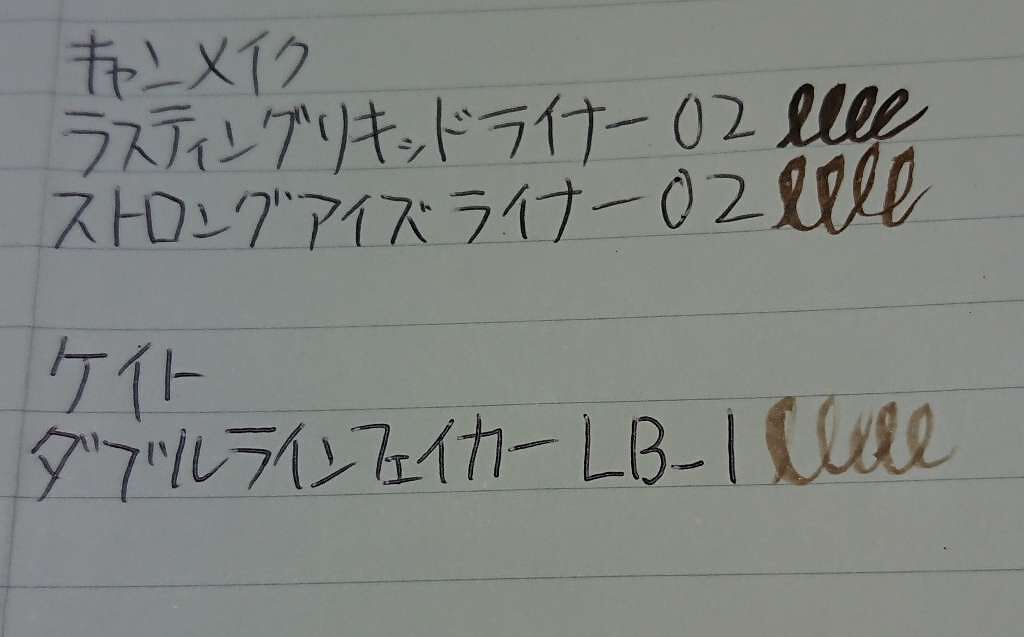 キャンメイク
ラスティングリキッドライナー02
ストロングアイズライナー02
ケイト
ダブルラインフェイカーLB-1